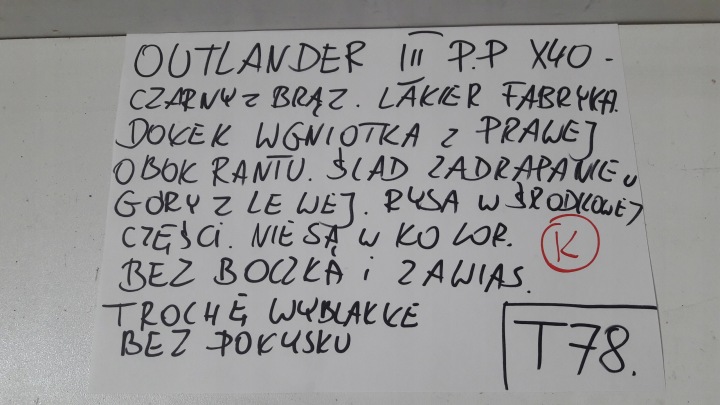 OUTLANDER III P.P X40-
CZARNY Z BRĄZ. LAKIER FABRYKA.
DOŁEK WGNIOTKA Z PRAWEJ
OBOK RANTU. ŚLAD ZADRAPANIE U
GÓRY Z LEWEJ. RYSA W ŚRODKOWEJ
CZĘŚCI. NIE SĄ W KOLOR.
K
BEZ BOCZKA i ZAWIAS.
TROCHĘ WYBLAKŁE
BEZ POŁYSKU
T78.